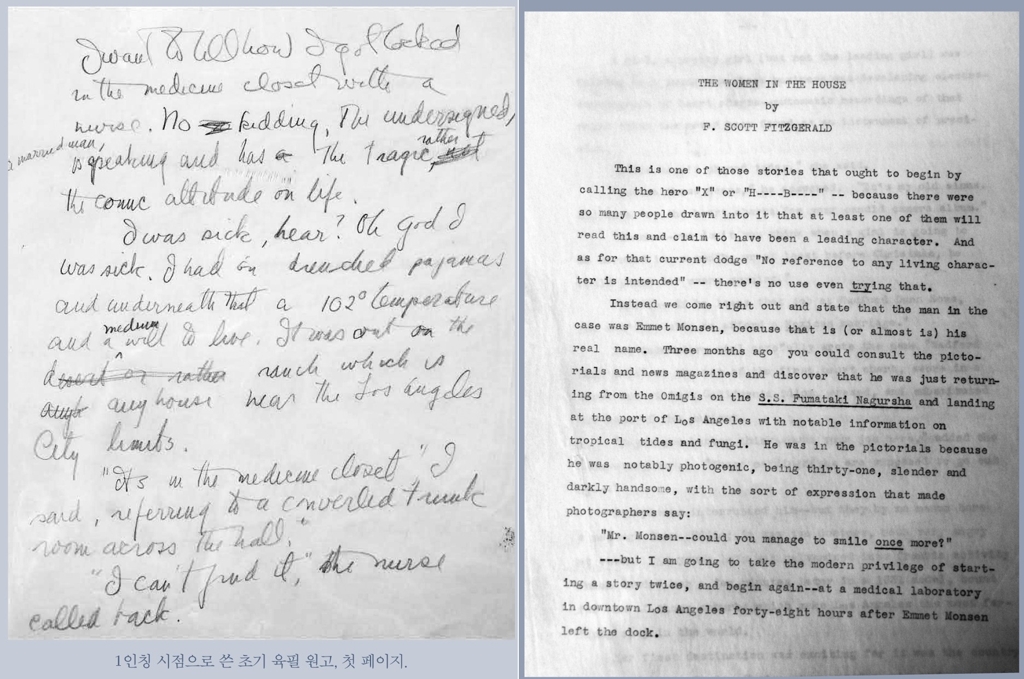 I want to tell how I got locked
in the medicine closet with a
nurse. No kidding. The undersigned,
a married man,
is speaking and has the tragic, rather
the comic attitude on life.
I was sick, hear? Oh god I
was sick. I had on drenched pajamas
and underneath that a 102° temperature
and a medium will to live. It was out on the
desert or rather ranch which is
any house near the Los Angeles
City limits.
"Its in the medicine closet" I
said, referring to a converted trunk
room across the hall."
"I can't find it," the nurse
called back.
1인칭 시점으로 쓴 초기 육필 원고, 첫 페이지.
THE WOMEN IN THE HOUSE
by
F. SCOTT FITZGERALD
This is one of those stories that ought to begin by
calling the hero "X" or "H----B----" -- because there were
so many people drawn into it that at least one of them will
read this and claim to have been a leading character. And
as for that current dodge "No reference to any living charac-
ter is intended" -- there's no use even trying that.
Instead we come right out and state that the man in the
case was Emmet Monsen, because that is (or almost is) his
real name. Three months ago you could consult the picto-
rials and news magazines and discover that he was just return-
ing from the Omigis on the S.S. Fumataki Nagursha and landing
at the port of Los Angeles with notable information on
tropical tides and fungi. He was in the pictorials because
he was notably photogenic, being thirty-one, slender and
darkly handsome, with the sort of expression that made
photographers say:
"Mr. Monsen--could you manage to smile once more?"
---but I am going to take the modern privilege of start-
ing a story twice, and begin again--at a medical laboratory
in downtown Los Angeles forty-eight hours after Emmet Monsen
left the dock.